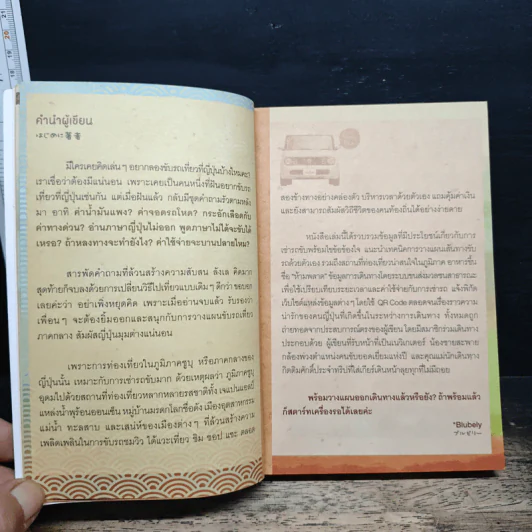 คำนำผู้เขียน
はじめに著者
มีใครเคยคิดเล่นๆ อยากลองขับรถเที่ยวที่ญี่ปุ่นบ้างไหมคะ?
เราเชื่อว่าต้องมีแน่นอน เพราะเคยเป็นคนหนึ่งที่ฝันอยากขับรถ
เที่ยวที่ญี่ปุ่นเช่นกัน แต่เมื่อฝันแล้ว กลับมีชุดคำถามรัวตามหลัง
มา อาทิ ค่าน้ำมันแพง? ค่าจอดรถโหด? กระอักเลือดกับ
ค่าทางด่วน? อ่านภาษาญี่ปุ่นไม่ออก พูดภาษาไม่ได้จะขับได้
เหรอ? ถ้าหลงทางจะทำยังไง? ค่าใช้จ่ายจะบานปลายไหม?
สารพัดคำถามที่ล้วนสร้างความสับสน ลังเล คิดมาก
สุดท้ายก็จบลงด้วยการเปลี่ยนวิธีไปเที่ยวแบบเดิมๆ ดีกว่า ขอบอก
เลยค่ะว่า อย่าเพิ่งหยุดคิด เพราะเมื่ออ่านจบแล้ว รับรองว่า
เพื่อนๆ จะต้องยิ้มออกและสนุกกับการวางแผนขับรถเที่ยว
ภาคกลาง สัมผัสญี่ปุ่นมุมต่างแน่นอน
เพราะการท่องเที่ยวในภูมิภาคชูบุ หรือภาคกลางของ
ญี่ปุ่นนั้น เหมาะกับการเช่ารถขับมาก ด้วยเหตุผลว่า ภูมิภาคชูบุ
อุดมไปด้วยสถานที่ท่องเที่ยวหลากหลายรสชาติทั้ง เจแปนแอลป์
แหล่งน้ำพุร้อนออนเซ็น หมู่บ้านมรดกโลกชื่อดัง เมืองอุตสาหกรรม
แม่น้ำ ทะเลสาบ และเสน่ห์ของเมืองต่างๆ ที่ล้วนสร้างความ
เพลิดเพลินในการขับรถชมวิว ได้แวะเที่ยว ชิม ชอป แชะ ตลอด
สองข้างทางอย่างคล่องตัว บริหารเวลาด้วยตัวเอง แถมคุ้มค่าเงิน
และยังสามารถสัมผัสวิถีชีวิตของคนท้องถิ่นได้อย่างง่ายดาย
หนังสือเล่มนี้ได้รวบรวมข้อมูลที่มีประโยชน์เกี่ยวกับการ
เช่ารถขับพร้อมไขข้อข้องใจ แนะนำเทคนิคการวางแผนเส้นทางขับ
รถด้วยตัวเอง รวมถึงสถานที่ท่องเที่ยวน่าสนใจในภูมิภาค อาหารขึ้น
ชื่อ "ห้ามพลาด" ข้อมูลการเดินทางโดยระบบขนส่งมวลชนสาธารณะ
เพื่อใช้เปรียบเทียบระยะเวลาและค่าใช้จ่ายกับการเช่ารถ แจ้งพิกัด
เว็บไซต์แหล่งข้อมูลต่างๆ โดยใช้ QR Code ตลอดจนเรื่องราวความ
น่ารักของคนญี่ปุ่นที่เกิดขึ้นในระหว่างการเดินทาง ทั้งหมดถูก
ถ่ายทอดจากประสบการณ์ตรงของผู้เขียน โดยมีสมาชิกร่วมเดินทาง
ประกอบด้วย ผู้เขียนที่รับหน้าที่เป็นเนวิเกเตอร์ น้องชายสะพาย
กล้องพ่วงตำแหน่งคนขับยอดเยี่ยมแห่งปี และคุณแม่นักเดินทาง
กิตติมศักดิ์ประจำทริปที่ใส่เกียร์เดินหน้าลุยทุกที่ไม่มีถอย
พร้อมวางแผนออกเดินทางแล้วหรือยัง? ถ้าพร้อมแล้ว
ก็สตาร์ทเครื่องรอได้เลยค่ะ
*Blubely
ブルベリー